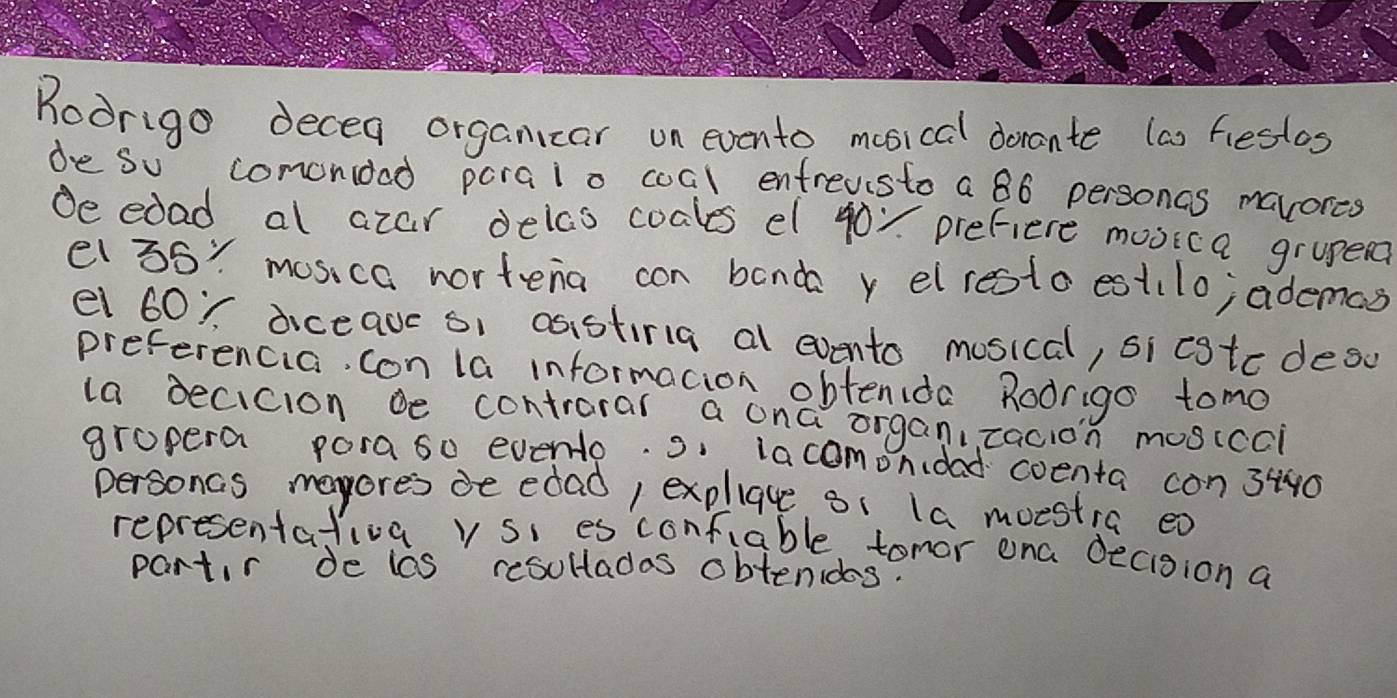 Rodrigo decea organizar un evento mosical dorante las fiestas
de su comonidad para lo coal entrevisto a 86 personas mayores
de edad al azar delas coales el 40% prefiere mosica grupera
el 35% mosica norteña con banda y el resto estilo; ademas
el 60% dice que si asistiria al evento mosical, si este de su
preferencia. con la informacion obtenida Rodrigo tomo
la decicion de contrarar a ona organización mosical
gropera para so evento. Si lacomonidad coenta con 3440
personas mayores de edad, explique si la moestra es
representativa y si es confiable tomar ona decision a
partir de los resoltados obtenidos.